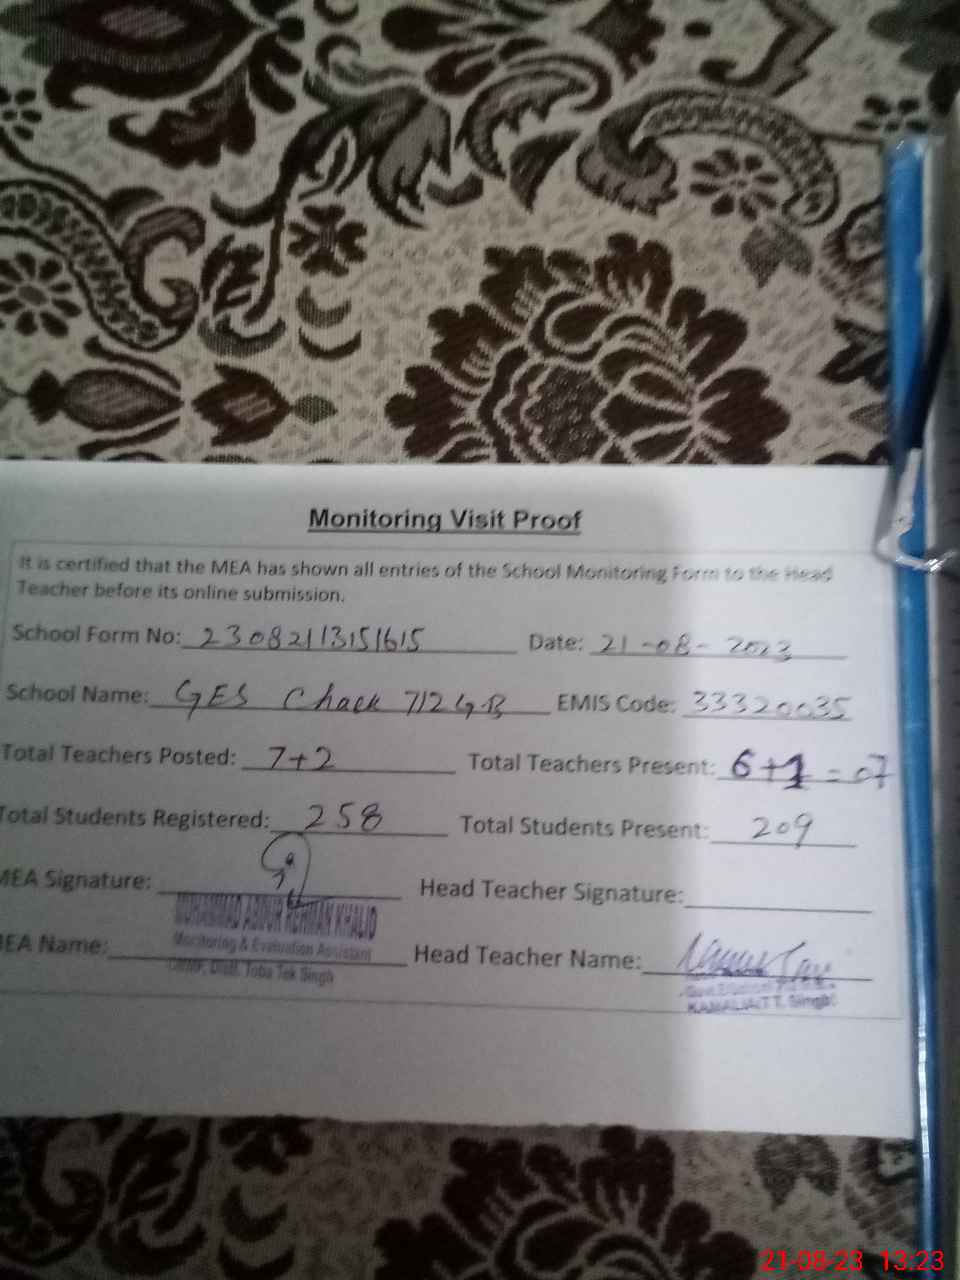 Monitoring Visit Proof
It is certified that the MEA has shown all entries of the School Monitoring Form to the Head
Teacher before its online submission.
School Form No: 23082113151615 Date: 21-08-2023
School Name: GES Chack 712 GB EMIS Code: 33320035
Total Teachers Posted: 7+2 Total Teachers Present: 6+1=07
Total Students Registered: 258 Total Students Present: 209
MEA Signature: Head Teacher Signature:
MUHAMMAD ABDUR REHMAN KHALID
MEA Name: Monitoring & Evaluation Assistant Head Teacher Name:
Distt. Toba Tek Singh
KAMALIA(T.T. Singh)
21-08-23 13:23